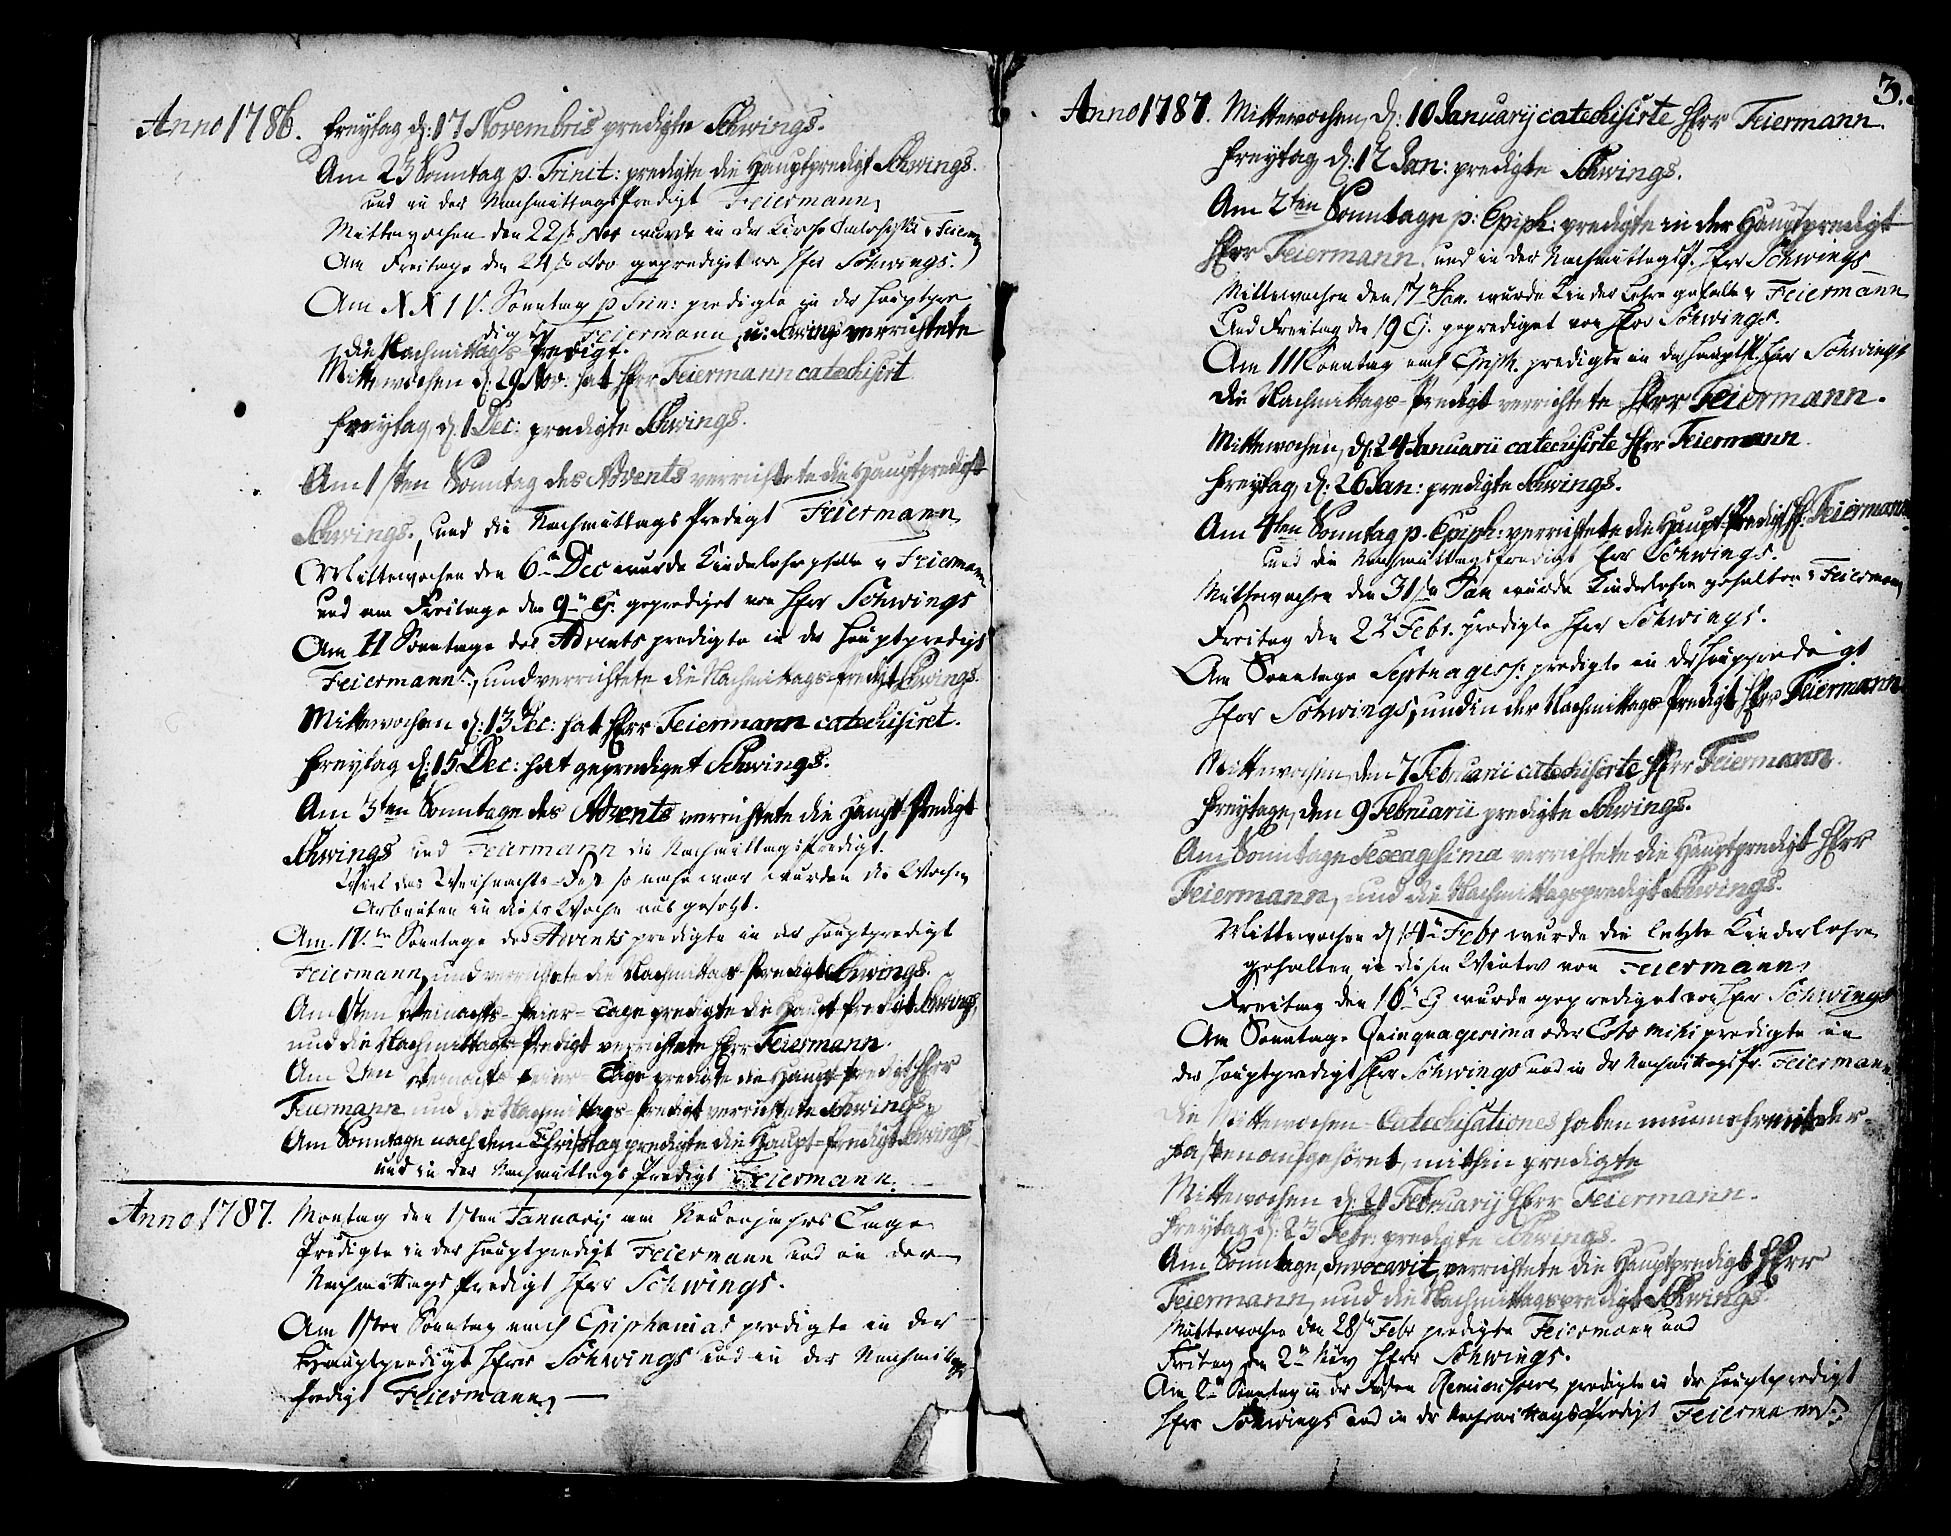 Anno 1786. Freytag d: 17 Novembris predigte Schwings.
Am 23 Sonntag p. Trinit: predigte die Hauptpredigt Schwings.
und in der Nachmittags Predigt Feiermann
Mittewochen den 22sten Nov wurde in der Kirche Catechesirt v Feierm
Am Freitage den 24sten Nov geprediget von Herr Schwings.
Am XXIV. Sonntag p Trin: predigte in der Hauptpre
digt Feiermann, u: Schwings verrichtete
die Nachmittags-Predigt.
Mittewochen d. 29 Nov: hat Herr Feiermann catechisirt
Freytag, d. 1 Dec: predigte Schwings.
Am 1sten Sonntag des Advents verrichtete die Hauptpredigt
Schwings., und die Nachmittags Predigt Feiermann
Mittewochen den 6n Dec wurde Kinderlehre gehalten v Feiermann
und am Freitage den 9n ej. geprediget von Herr Schwings
Am II Sonntage des Advents predigte in der Hauptpredigt
Feiermann, und verrichtete die Nachmittags-Predigt Schwings.
Mittewochen d: 13 Dec: hat Herr Feiermann catechisiret.
Freytag d: 15 Dec: hat geprediget Schwings.
Am 3ten Sonntage des Advents verrichtete die Haupt-Predigt
Schwings und Feiermann die Nachmittags Predigt.
Weil das Weihnachts-Fest so nahe war wurden die Wochen
Arbeiten in dieser Woche ausgesetzt.
Am IV.ten Sonntage des Advents predigte in der Hauptpredigt
Feiermann, und verrichtete die Nachmittags-Predigt Schwings.
Am 1sten Weinachts-Feier-Tage predigte die Haupt Predigt Schwings,
und die Nachmittags-Predigt verrichtete Herr Feiermann.
Am 2ten Weinachts Feier-Tage predigte die Haupt-Predigt Herr
Feiermann und die Nachmittags-Predigt verrichtete Schwings.
Am Sonntage nach dem Christtag predigte die Haupt-Predigt Schwings
und in der Nachmittags Predigt Feiermann.
Anno 1787. Montag den 1sten January am Neuenjahrs Tage
Predigte in der Hauptpredigt Feiermann und in der
Nachmittags Predigt Herr Schwings.
Am 1sten Sonntag nach Epiphanias predigte in der
Hauptpredigt Herr Schwings und in der Nachmittags
Predigt Feiermann. —
3.
Anno 1787. Mittewochen, d: 10 Januarij catechisirte Herr Feiermann.
Freytag, d: 12 Jan: predigte Schwings.
Am 2ten Sonntage p: Epiph: predigte in der Hauptpredigt
Herr Feiermann. und in der Nachmittagsp. Herr Schwings
Mittewochen den 17n Jan. wurde Kinder Lehre gehalt v Feiermann
Und Freytag den 19 ej. geprediget von Herr Schwings.
Am III Sonntag nach Epiph. predigte in der Hauptp. Herr Schwings
die Nachmittags-Predigt verrichtete Herr Feiermann.
Mittewochen, d: 24 Januarii catechisirte Herr Feiermann.
Freytag, d: 26 Jan: predigte Schwings.
Am 4ten Sonntag p. Epiph: verrichtete die Haupt-Predigt H: Feiermann
und die Nachmittagspredigt Herr Schwings.
Mittewochen den 31sten Jan wurde Kinderlehre gehalten v Feiermann
Freitag den 2n Febr. predigte Herr Schwings.
Am Sonntage Septuagess: predigte in der Hauppredigt
Herr Schwings, und in der Nachmittags-Predigt Herr Feiermann.
Mittewochen, den 7 Februarii catechisirte Herr Feiermann.
Freytage, den 9 Februarii predigte Schwings.
Am Sonntage Sexagesima verrichtete die Hauptpredigt Herr
Feiermann, und die Nachmittagspredigt Schwings.
Mittewochen d 14n Febr wurde die letzte Kinderlehre
gehalten in diesen Winter von Feiermann,
Freitag den 16n ej wurde geprediget von Herr Schwings
Am Sonntage Quinquagesima oder Esto mihi predigte in
der Hauptpredigt Herr Schwings und in der Nachmittagspr. Feiermann.
Die Mittewochen-Catechisationes haben nunmehr mit der
Fasten aufgehöret, mithin predigte
Mittewochen d: 21 Februarij Herr Feiermann.
Freytag d: 23 Febr: predigte Schwings.
Am Sonntage, Invocavit, verrichtete die Hauptpredigt Herr
Feiermann, und die Nachmittagspredigt Schwings
Mittewochen den 28sten Febr predigte Feiermann und
Freitag den 2n Herr Schwings.
Am 2n Sonntag in der Fasten Reminiscere predigte in der Hauptpredigt
Herr Schwings und in der Nachmittagspredigt Feiermann.